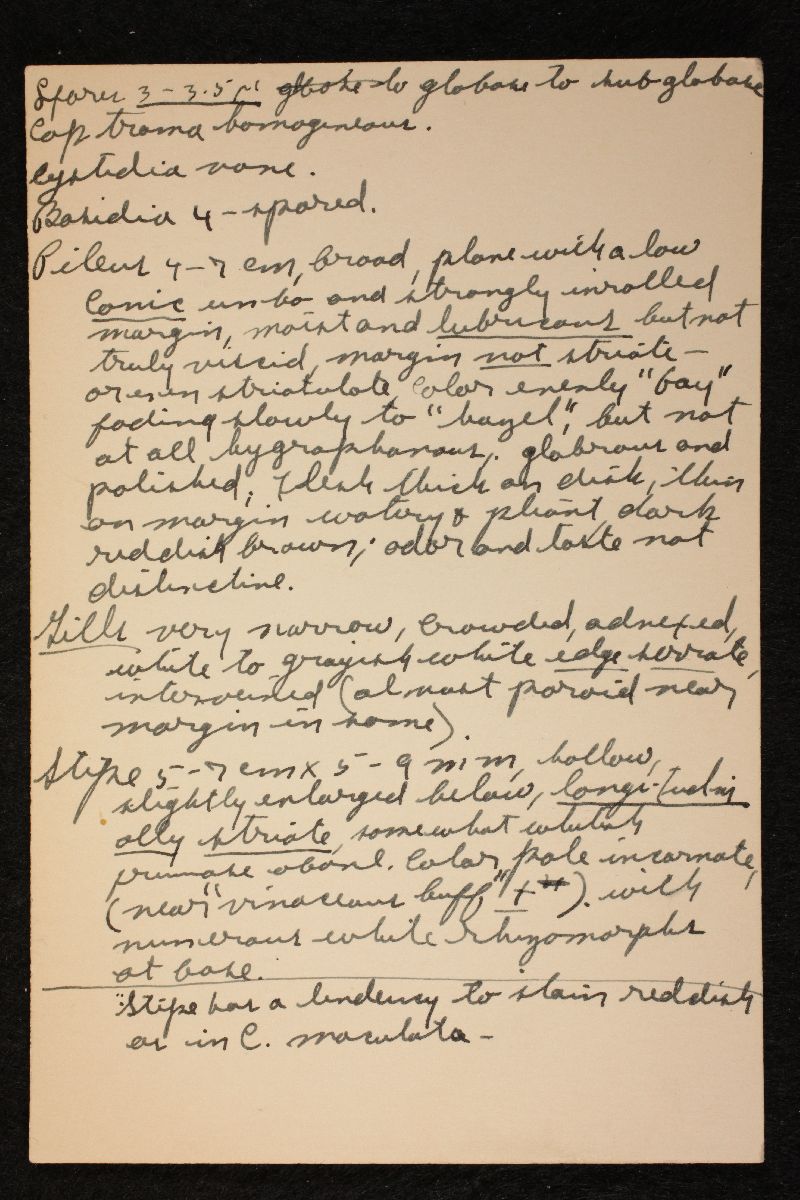 Spores 3-3.5µ globose to globose to subglobose
Cap trama homogeneous.
Cystidia none.
Basidia 4-spored.
Pileus 4-7 cm, broad, plane with a low
conic umbo and strongly inrolled
margin, moist and lubricous but not
truly viscid, margin not striate —
or even striatulate, Color evenly "bay"
fading slowly to "hazel", but not
at all hygrophanous, glabrous and
polished; flesh thick on disk, thin
on margin watery & pliant dark
reddish brown; odor and taste not
distinctive.
Gills very narrow, crowded, adnexed,
white to grayish white edge serrate,
intervenied (almost poroid near
margin in some).
Stipe 5-7 cm x 5-9 mm, hollow,
slightly enlarged below, longitudin
ally striate, somewhat whitish
pruinose above. Color pale incarnate,
(near "vinaceous buff" +). with
numerous white rhizomorphs
at base.
Stipe has a tendency to stain reddish
as in C. maculata -